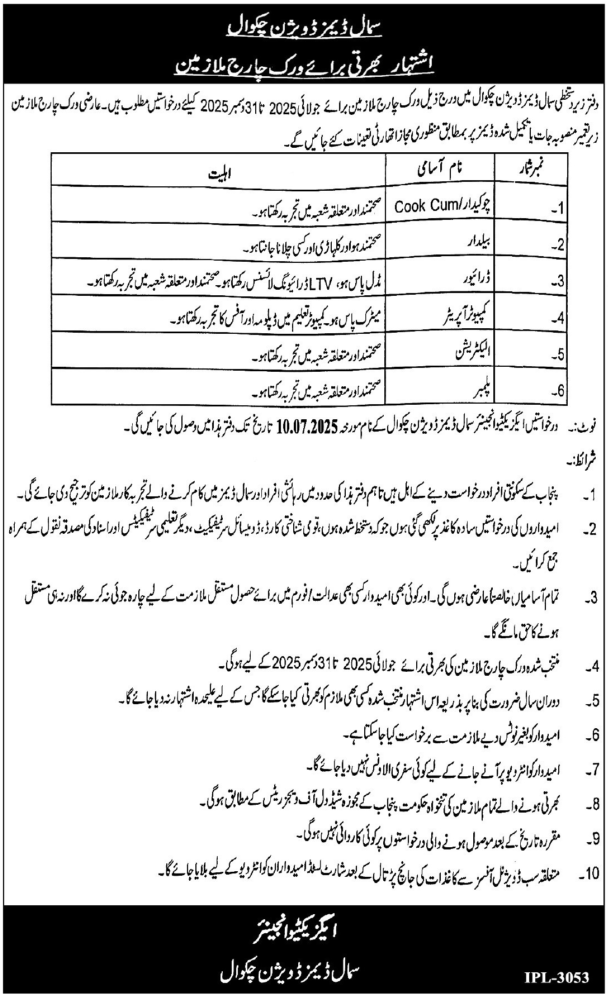 سمال ڈیمز ڈویژن چکوال
اشتہار بھرتی برائے ورک چارج ملازمین
دفتر زیر دستخطی سمال ڈیمز ڈویژن چکوال میں درج ذیل ورک چارج ملازمین برائے جولائی 2025 تا 31 دسمبر 2025 کیلئے درخواستیں مطلوب ہیں۔ عارضی ورک چارج ملازمین
زیر تعمیر منصوبہ جات یا تکمیل شدہ ڈیمز پر بمطابق منظوری مجاز اتھارٹی تعینات کئے جائیں گے۔
نمبر شمار نام آسامی اہلیت
1۔ چوکیدار/Cook Cum صحتمند اور متعلقہ شعبہ میں تجربہ رکھتا ہو۔
2۔ بیلدار صحتمند ہو اور کلہاڑی اور کسی چلانا جانتا ہو۔
3۔ ڈرائیور مڈل پاس ہو، LTV ڈرائیونگ لائسنس رکھتا ہو۔ صحتمند اور متعلقہ شعبہ میں تجربہ رکھتا ہو۔
4۔ کمپیوٹر آپریٹر میٹرک پاس ہو۔ کمپیوٹر تعلیم میں ڈپلومہ اور آفس کا تجربہ رکھتا ہو۔
5۔ الیکٹریشن صحتمند اور متعلقہ شعبہ میں تجربہ رکھتا ہو۔
6۔ پلمبر صحتمند اور متعلقہ شعبہ میں تجربہ رکھتا ہو۔
نوٹ:۔ درخواستیں ایگزیکٹیو انجینئر سمال ڈیمز ڈویژن چکوال کے نام مورخہ 10.07.2025 تاریخ تک دفتر ہذا میں وصول کی جائیں گی۔
شرائط:۔
1۔ پنجاب کے سکونتی افراد درخواست دینے کے اہل ہیں تاہم دفتر ہذا کی حدود میں رہائشی افراد اور سمال ڈیمز میں کام کرنے والے تجربہ کار ملازمین کو ترجیح دی جائے گی۔
2۔ امیدواروں کی درخواستیں سادہ کاغذ پر لکھی گئی ہوں جو کہ دستخط شدہ ہوں، قومی شناختی کارڈ، ڈومیسائل سرٹیفکیٹ، دیگر تعلیمی سرٹیفکیٹس اور اسناد کی مصدقہ نقول کے ہمراہ
جمع کرائیں۔
3۔ تمام آسامیاں خالصتاً عارضی ہوں گی۔ اور کوئی بھی امیدوار کسی بھی عدالت/فورم میں برائے حصول مستقل ملازمت کے لیے چارہ جوئی نہ کرے گا اور نہ ہی مستقل
ہونے کا حق مانگے گا۔
4۔ منتخب شدہ ورک چارج ملازمین کی بھرتی برائے جولائی 2025 تا 31 دسمبر 2025 کے لیے ہوگی۔
5۔ دوران سال ضرورت کی بنا پر بذریعہ اس اشتہار منتخب شدہ کسی بھی ملازم کو بھرتی کیا جا سکے گا جس کے لیے علیحدہ اشتہار نہ دیا جائے گا۔
6۔ امیدوار کو بغیر نوٹس دیے ملازمت سے برخواست کیا جا سکتا ہے۔
7۔ امیدوار کو انٹرویو پر آنے جانے کے لیے کوئی سفری الاؤنس نہیں دیا جائے گا۔
8۔ بھرتی ہونے والے تمام ملازمین کی تنخواہ حکومت پنجاب کے مجوزہ شیڈول آف ویجز ریٹس کے مطابق ہوگی۔
9۔ مقررہ تاریخ کے بعد موصول ہونے والی درخواستوں پر کوئی کاروائی نہیں ہوگی۔
10۔ متعلقہ سب ڈویژنل آفسز سے کاغذات کی جانچ پڑتال کے بعد شارٹ لسٹڈ امیدواران کو انٹرویو کے لیے بلایا جائے گا۔
ایگزیکٹیو انجینئر
سمال ڈیمز ڈویژن چکوال
IPL-3053